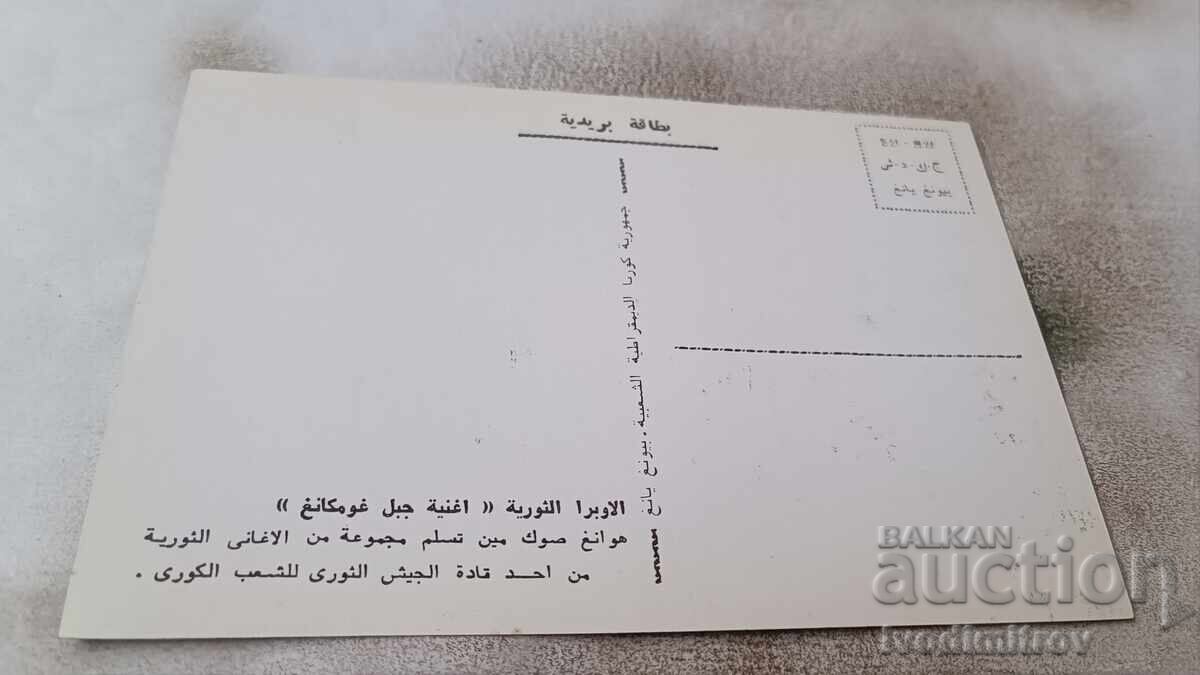 بطاقة بريدية
ج.ك.د.ش
بيونغ يانغ
جمهورية كوريا الديمقراطية الشعبية . بيونغ يانغ
الاوبرا الثورية « اغنية جبل غومكانغ »
هوانغ صوك مين تسلم مجموعة من الاغانى الثورية
من احد قادة الجيش الثورى للشعب الكورى .
BALKAN
auction
ivodimitrov